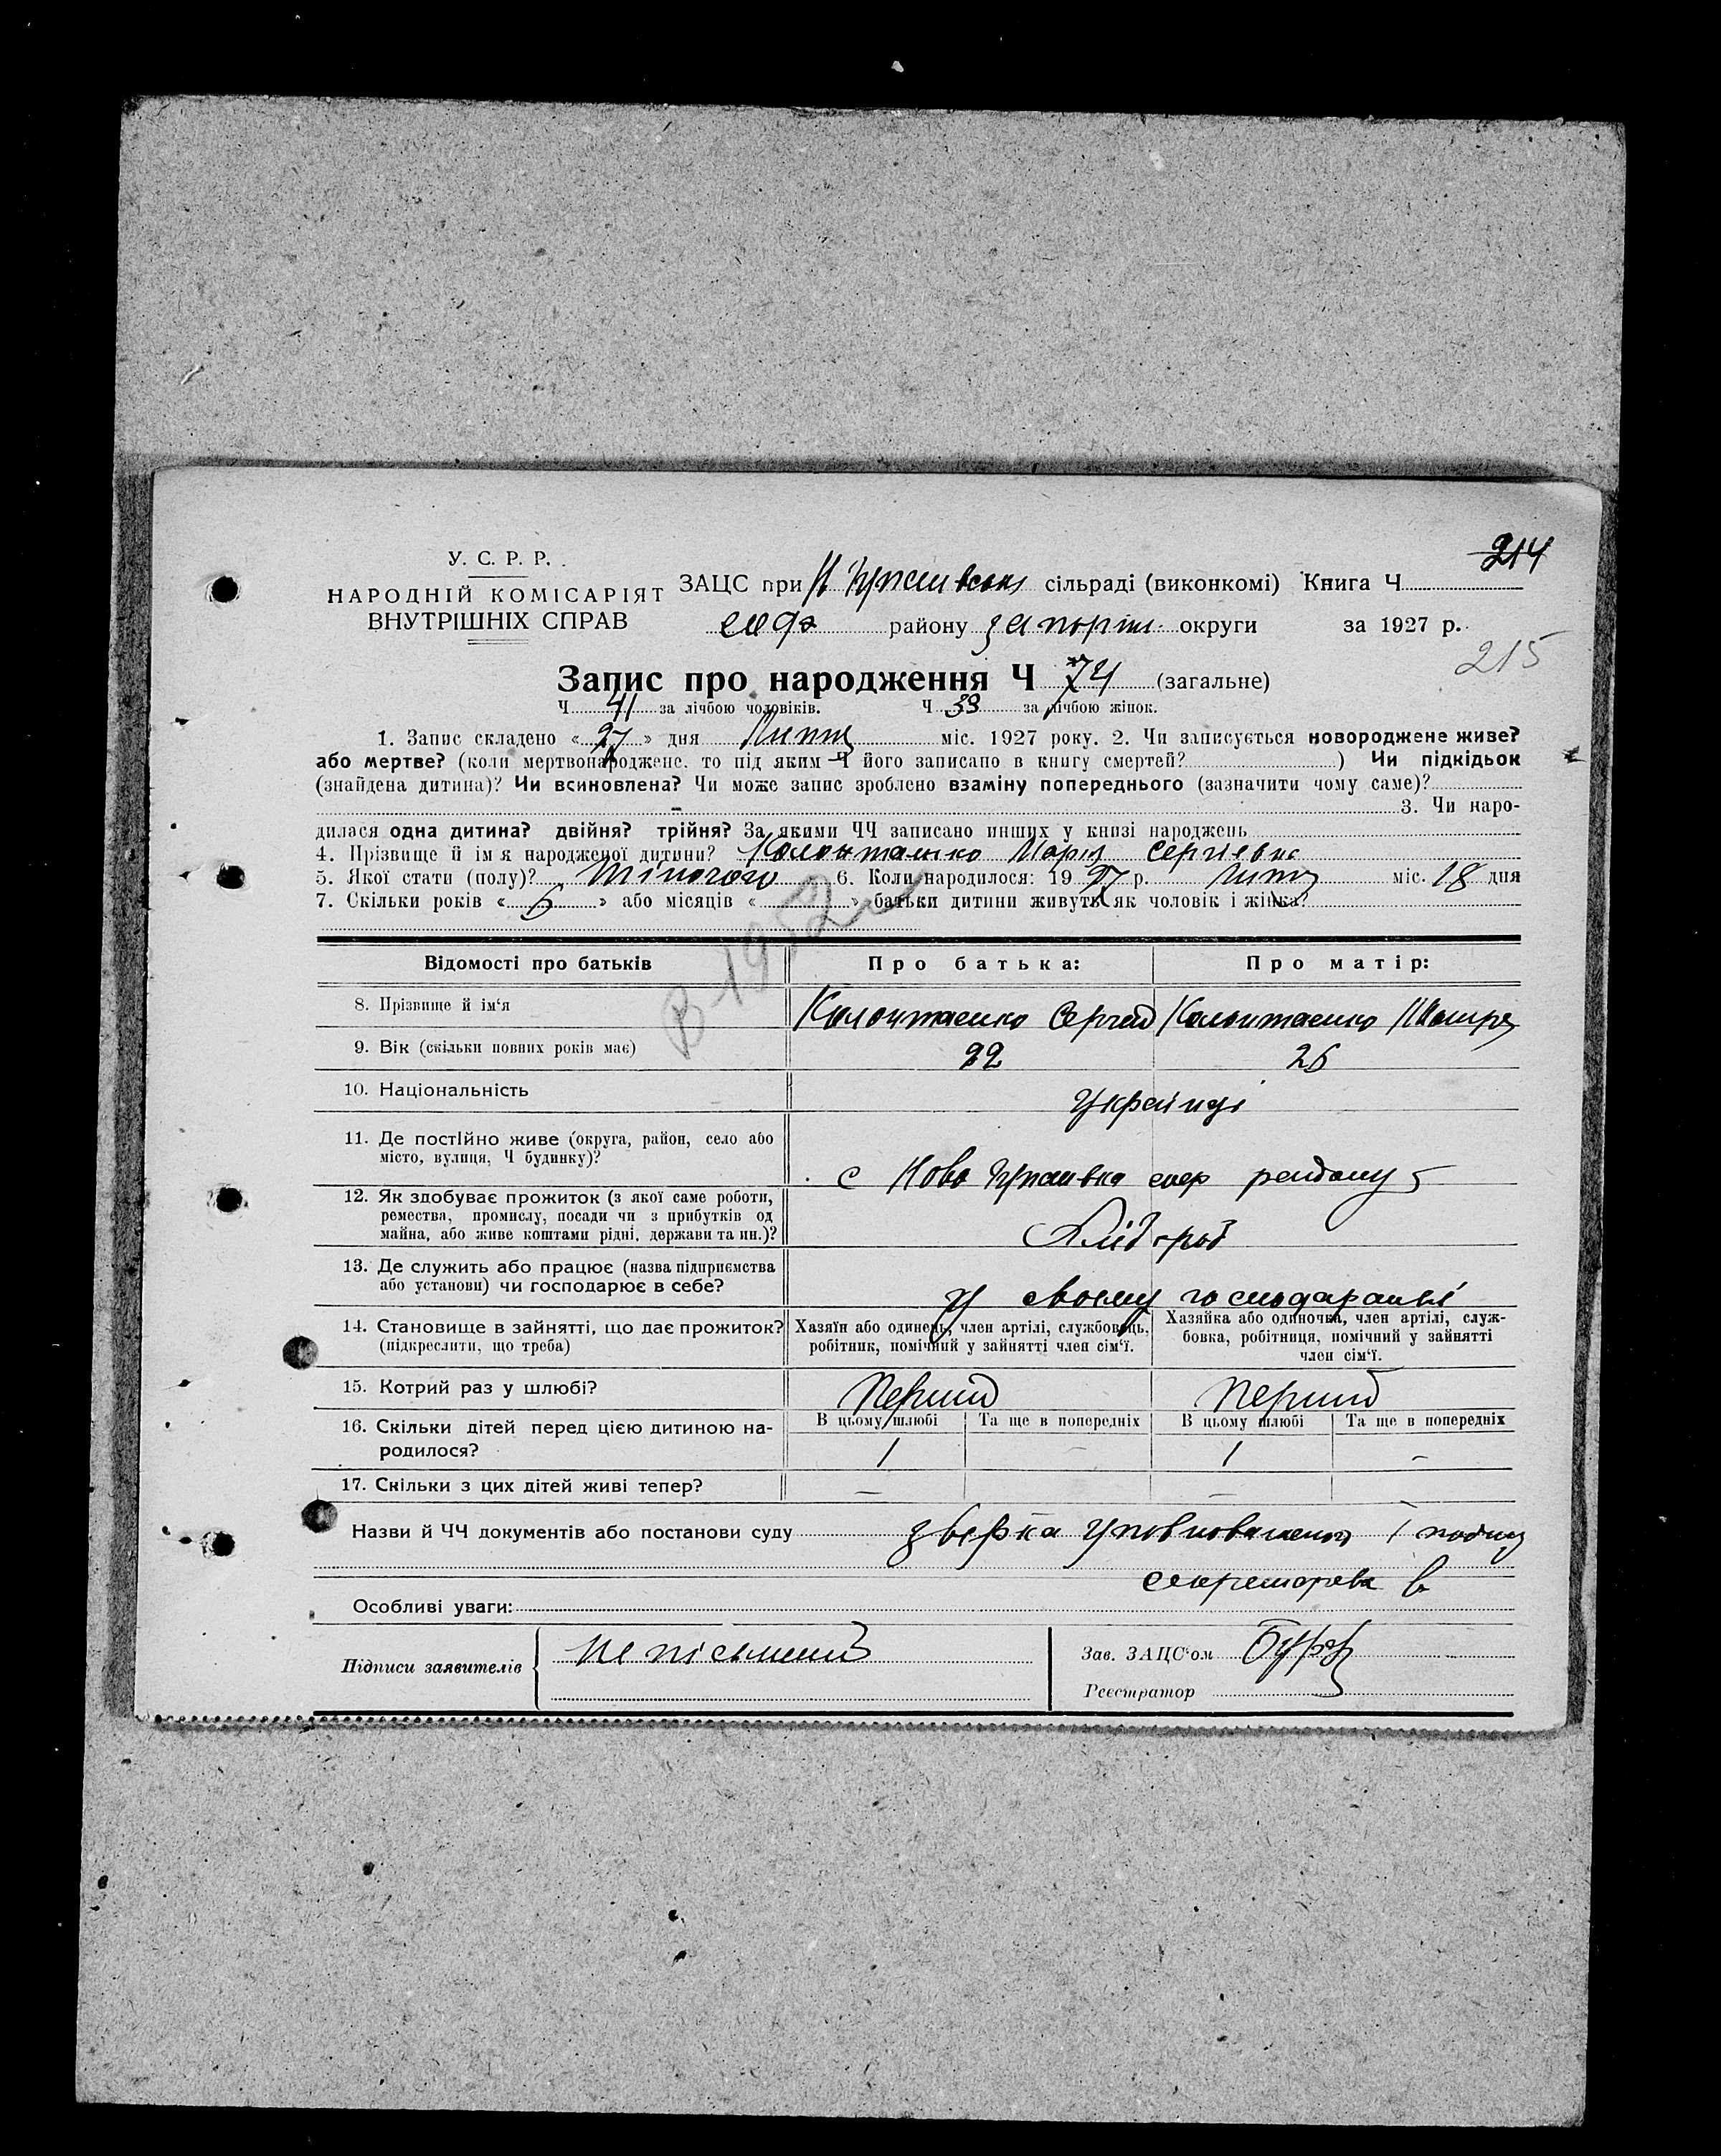 214
У. С. Р. Р.
НАРОДНІЙ КОМІСАРІЯТ
ВНУТРІШНІХ СПРАВ
ЗАЦС при сільраді (виконкомі) Книга Ч
району запоріж. округи за 1927 р.
215
Запис про народження Ч 74 (загальне)
Ч 41 за лічбою чоловіків. Ч 33 за лічбою жінок.
1. Запис складено «27» дня Липця міс. 1927 року. 2. Чи записується новороджене живе?
або мертве? (коли мертвонароджене, то під яким Ч його записано в книгу смертей? ) Чи підкідьок
(знайдена дитина)? Чи всиновлена? Чи може запис зроблено взаміну попереднього (зазначити чому саме)?
3. Чи наро-
дилася одна дитина? двійня? трійня? За якими ЧЧ записано инших у книзі народжень
4. Прізвище й ім'я народженої дитини? Колонтаенко Марія Сергіевна
5. Якої стати (полу)? жіночого 6. Коли народилося: 1927 р. Липця міс. 18 дня
7. Скільки років « » або місяців « » батьки дитини живуть як чоловік і жінка?
В 1952
Відомості про батьків Про батька: Про матір:
8. Прізвище й ім'я Колонтаенко Сергій Колонтаенко
9. Вік (скільки повних років має) 22 26
10. Національність Українці
11. Де постійно живе (округа, район, село або
місто, вулиця, Ч будинку)? с Ново району
12. Як здобуває прожиток (з якої саме роботи,
ремества, промислу, посади чи з прибутків од
майна, або живе коштами рідні, держави та ин.)? Хлібороб
13. Де служить або працює (назва підприємства
або установи) чи господарює в себе? у своему господарстві
14. Становище в зайнятті, що дає прожиток?
(підкреслити, що треба)
Хазяїн або одинець, член артілі, службовець,
робітник, помічний у зайнятті член сім'ї.
Хазяйка або одиночка, член артілі, служ-
бовка, робітниця, помічний у зайнятті
член сім'ї.
15. Котрий раз у шлюбі? Перший Перший
16. Скільки дітей перед цією дитиною на-
родилося?
В цьому шлюбі Та ще в попередніх В цьому шлюбі Та ще в попередніх
1 - 1 -
17. Скільки з цих дітей живі тепер? — —
Назви й ЧЧ документів або постанови суду
Особливі уваги:
Підписи заявителів неписьменний
Зав. ЗАЦС'ом
Реєстратор